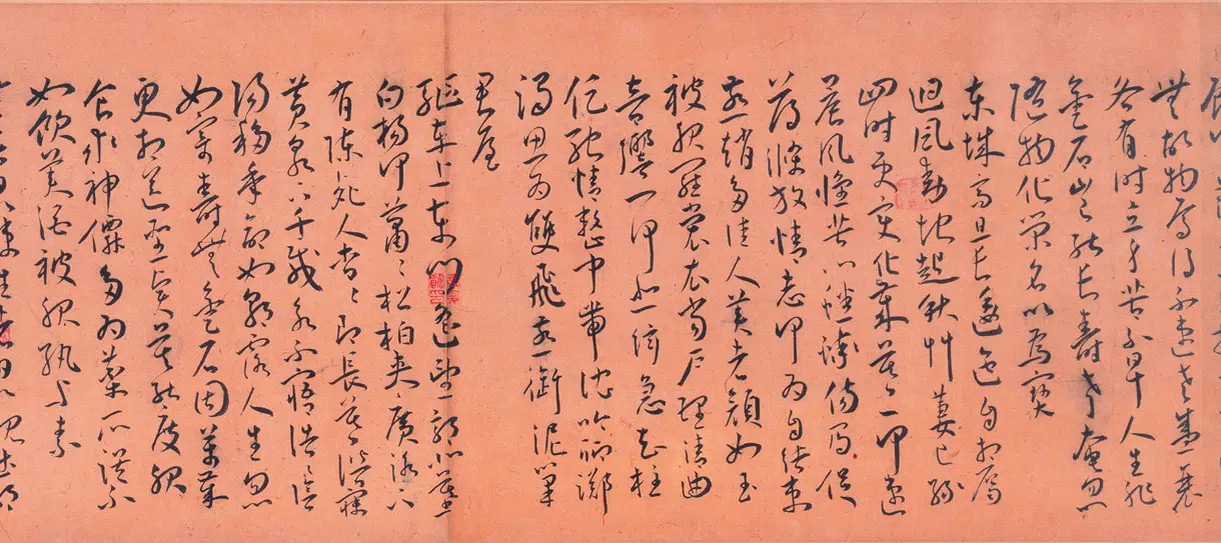 無故物焉得不速老盛衰
各有時立身苦不早人生非
金石豈能長壽考奄忽
隨物化榮名以為寶
東城高且長逶迤自相屬
迴風動地起秋艸萋已綠
四時更變化歲暮一何速
晨風懷苦心蟋蟀傷局促
蕩滌放情志何為自結束
燕趙多佳人美者顏如玉
被服羅裳衣當戶理清曲
音響一何悲絃急知柱
促馳情整中帶沈吟聊躑
躅思為雙飛燕銜泥巢
君屋
驅車上東門遙望郭北墓
白楊何蕭〻松柏夾廣路下
有陳死人杳〻即長暮潛寐
黃泉下千載永不寤浩〻陰
陽移年命如朝露人生忽
如寄壽無金石固萬歲
更相送聖賢莫能度服
食求神僊多為藥所誤不
如飲美酒被服紈與素